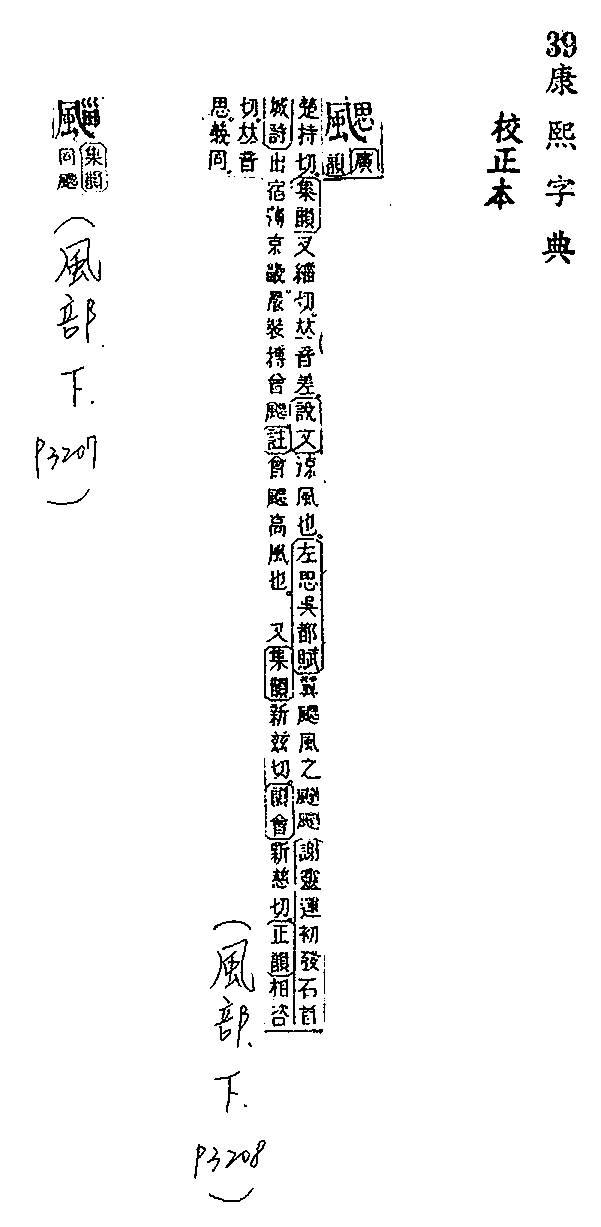 39康熙字典
校正本
颸廣韻
楚持切。集韻叉緇切。𠀤音差。說文涼風也。左思吳都賦翼颸風之飂飂謝靈運初發石首
城詩出宿薄京畿晨裝摶曾颸註曾颸高風也。又集韻新兹切。韻會新慈切。正韻相咨
切𠀤音
思。義同。
(風部.下.P3208)
集韻
同颸
(風部.下.P3207)